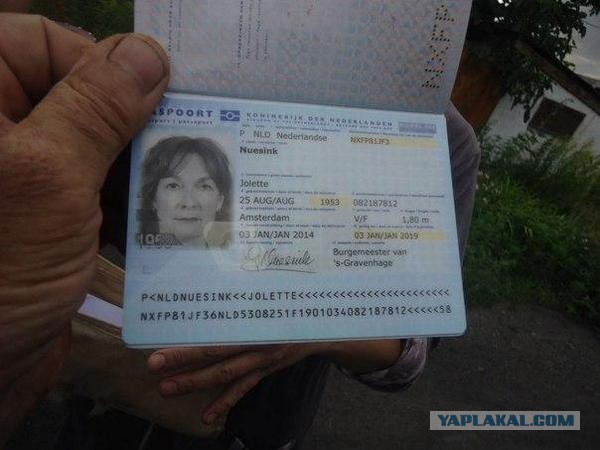 NXFP
PASPOORT KONINKRIJK DER NEDERLANDEN
P NLD Nederlandse NXFP81JF3
Nuesink
Jolette
25 AUG/AUG 1953 082187812
Amsterdam V/F 1,80 m
03 JAN/JAN 2014 03 JAN/JAN 2019
1953 JNuesink Burgemeester van
's-Gravenhage
P<NLDNUESINK<<JOLETTE<<<<<<<<<<<<<<<<<<<<<<<
NXFP81JF36NLD5308251F1901034082187812<<<<<58
YAPLAKAL.COM